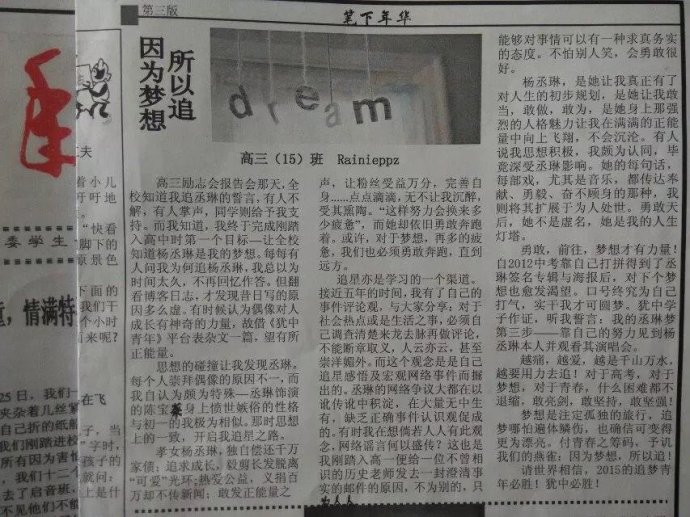 第三版
笔下年华
因为梦想
所以追
dream
高三（15）班 Rainieppz
高三励志会报告会那天，全
校知道我追丞琳的誓言，有人不
解，有人掌声，同学则给予我支
持。而我知道，我终于完成刚踏
入高中时第一个目标—让全校
知道杨丞琳是我的梦想。每每有
人问我为何追杨丞琳，我总以为
时间太久，不再回忆作答。但翻
看博客日志，才发现昔日写的原
因多么虚。有时候认为偶像对人
成长有神奇的力量，故借《犹中
青年》平台表杂文一篇，望有所
正能量。
思想的碰撞让我发现丞琳，
每个人崇拜偶像的原因不一，而
我自认为颇为特殊—丞琳饰演
的陈宝蓁身上愤世嫉俗的性格
与初一的我极为相似。那时思想
上的一致，开启我追星之路。
孝女杨丞琳，独自偿还千万
家债；追求成长，毅剪长发脱离
“可爱”光环;热爱公益，义捐百
万却不传新闻；敢发正能量之
声，让粉丝受益万分，完善自
身.....点点滴滴，无不让我沉醉，
受其熏陶。“这样努力会换来多
少疲惫”，而她却依旧勇敢奔跑
着。或许，对于梦想，再多的疲
惫，我们也必须勇敢奔跑，直到
远方。
追星亦是学习的一个渠道。
接近五年的时间，我有了自己的
事件评论观，与大家分享：对于
社会热点或是生活之事，必须自
己调查清楚来龙去脉再做评论，
不能断章取义，人云亦云，甚至
崇洋媚外。而这个观念是是自己
追星感悟及宏观网络事件而掘
出的。丞琳的网络争议大都在以
讹传讹中积淀，在大量无中生
有，缺乏正确事件认识观促成
的。有时我在想倘若人人有此观
念，网络谣言何以盛传？这也是
我刚踏入高一便给一位不曾相
识的历史老师发去一封澄清事
实的邮件的原因，不为别的，只
为人人
能够对事情可以有一种求真务实
的态度。不怕别人笑，会勇敢很
好。
杨丞琳，是她让我真正有了
对人生的初步规划，是她让我敢
当，敢做，敢为，是她身上那强
烈的人格魅力让我在满满的正能
量中向上飞翔，不会沉沦。有人
说我思想积极，我颇为认同，毕
竟深受丞琳影响。她的每句话，
每部戏，尤其是音乐，都传达奉
献、勇毅、奋不顾身的那种，我
则将其扩展于为人处世。勇敢天
后，她不是虚名，她是我的人生
灯塔。
勇敢，前往，梦想才有力量！
自2012中考靠自己打拼得到了丞
琳签名专辑与海报后，对下个梦
想也愈发渴望。口号终究为自己
打气，实干见才可圆梦。犹中学
子作证，听我誓言：我的丞琳梦
第三步——靠自己的努力见到杨
丞琳本人并观看其演唱会。
越痛，越爱，越是千山万水，
越要用力去追！对于高考，对于
梦想，对于青春，什么困难都不
退缩，敢亮剑，敢坚持，敢坚强！
梦想是注定孤独的旅行，追
梦哪怕遍体鳞伤，也确信可变得
更为漂亮。付青春之筹码，予讥
我们的燕雀：因为梦想，所以追！
请世界相信，2015的追梦青
年必胜！犹中必胜！